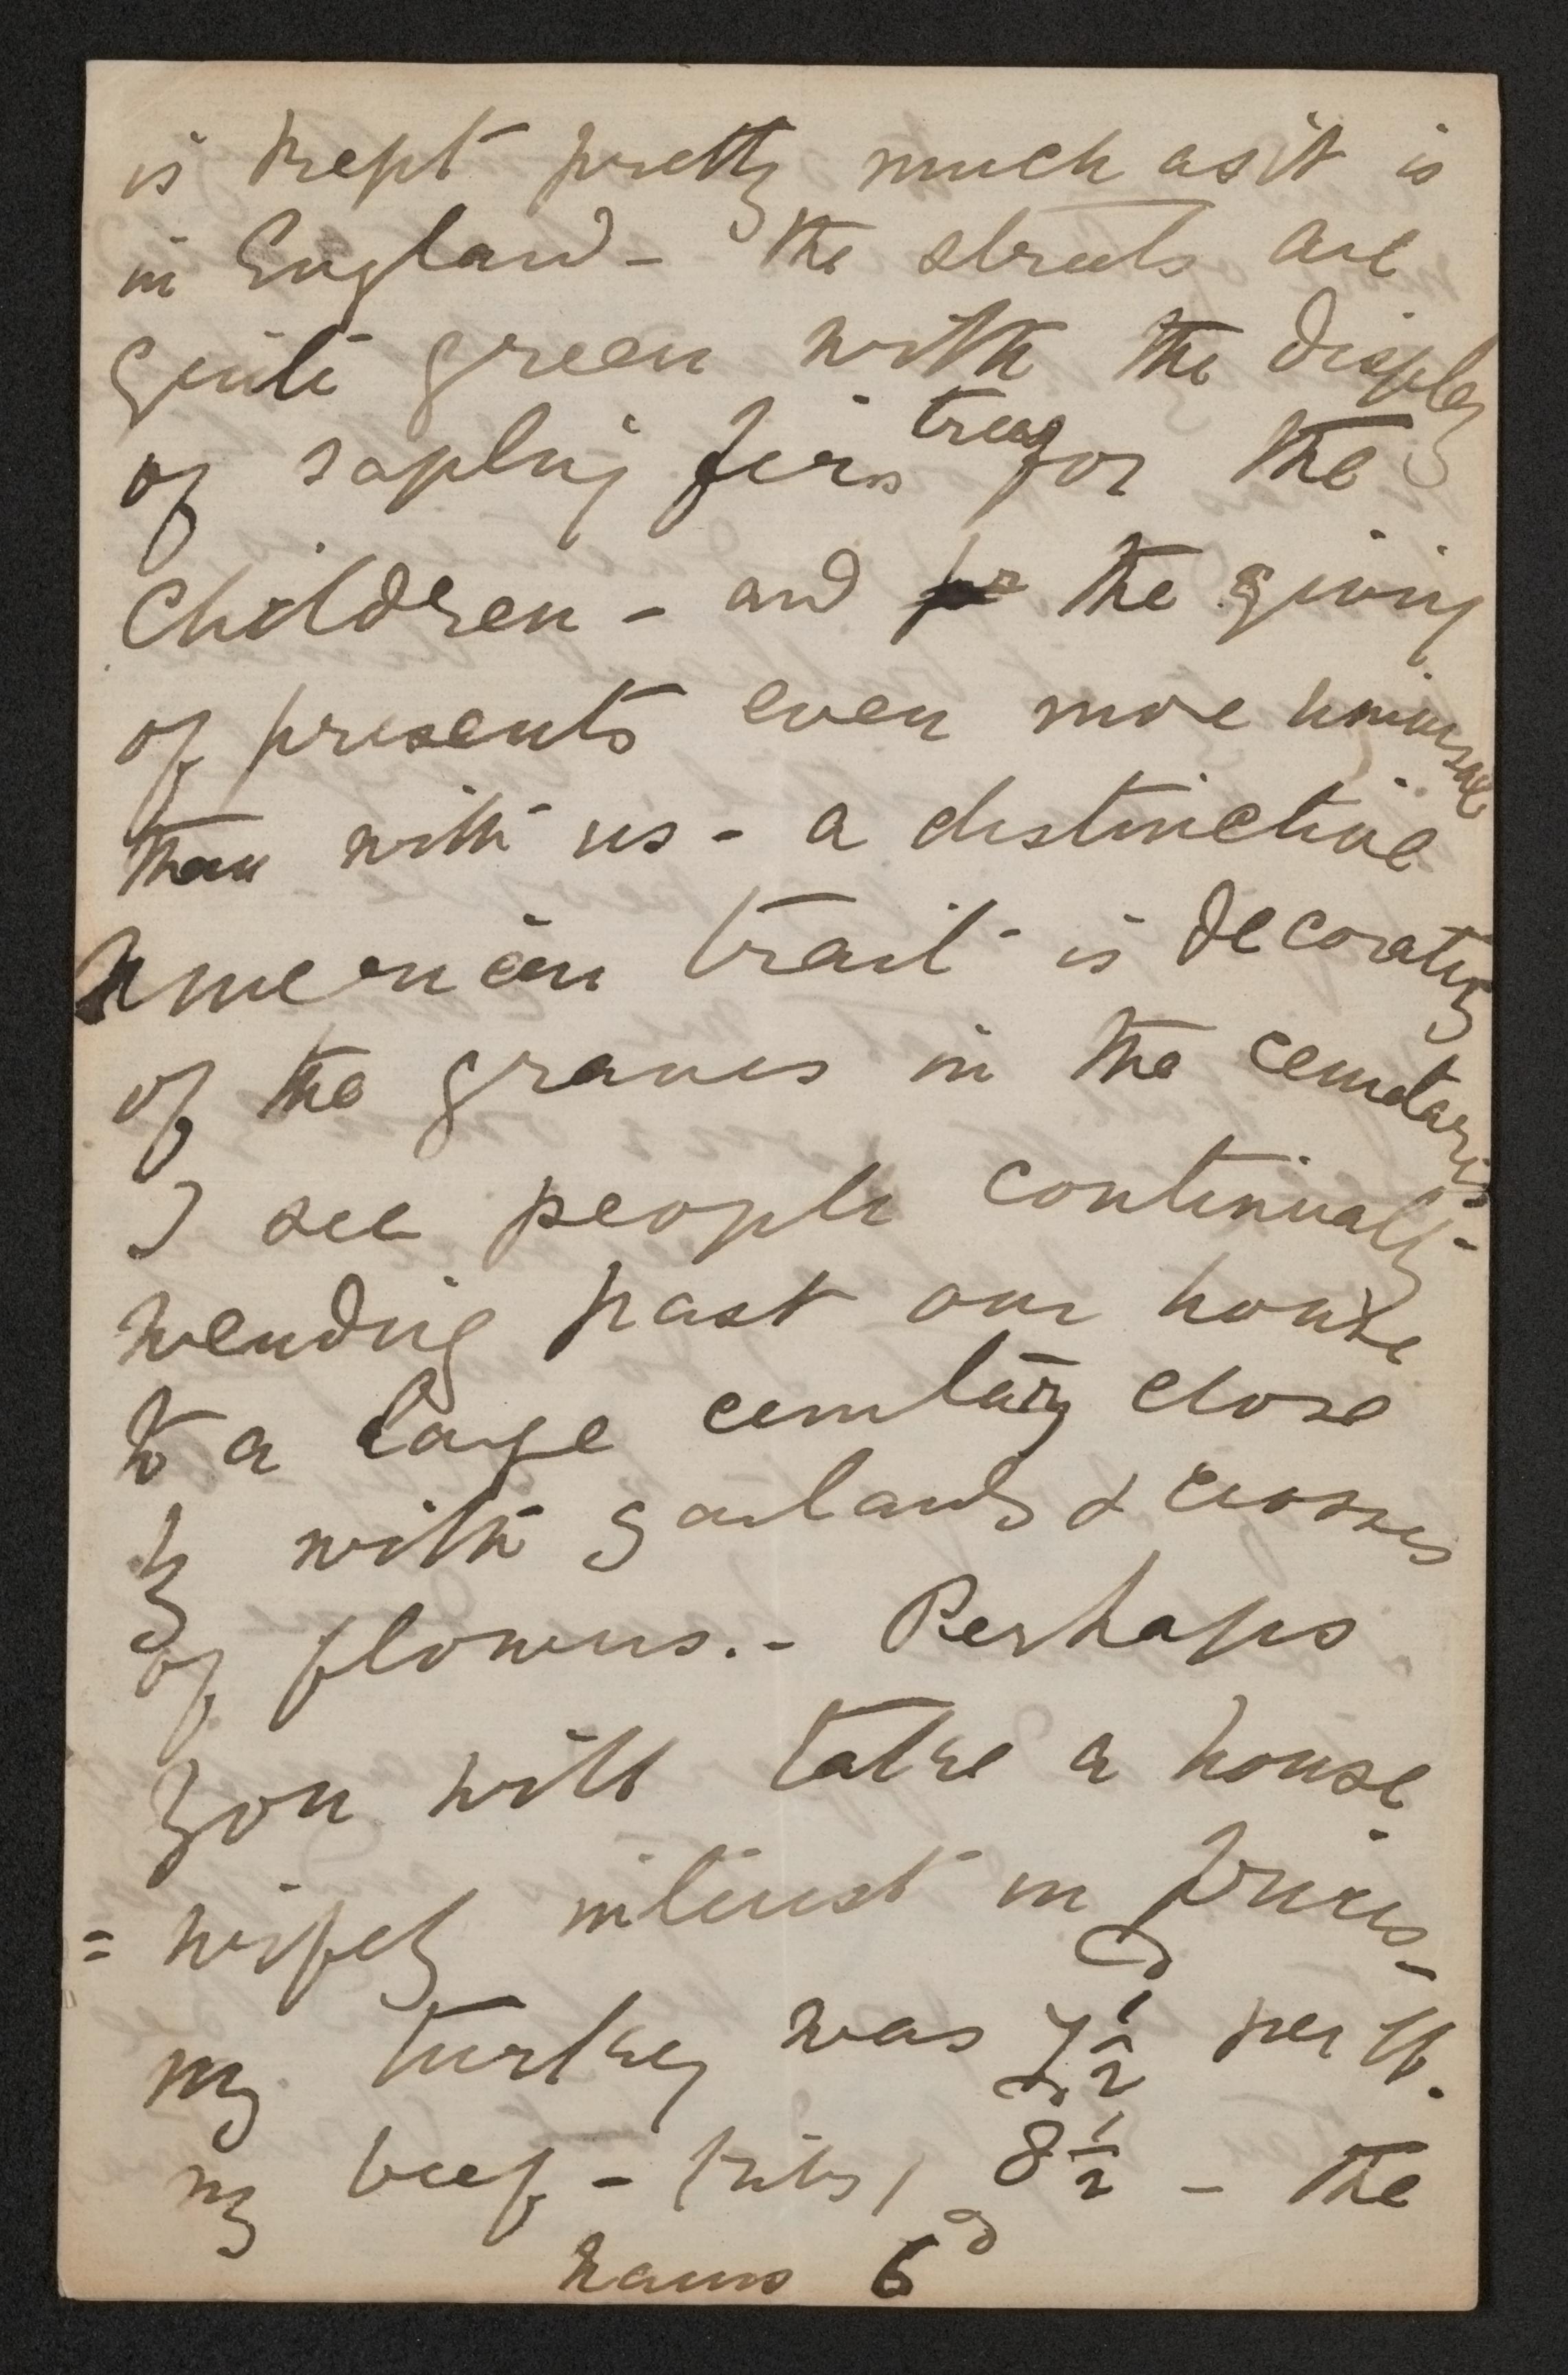 is kept pretty much as it is
in England - the streets are
quite green with the display
of sapling firs trees for the
Children - and for the giving
of presents even more universal
than with us - a distinctive
American trait - is decorating
of the graves in the cemetaries
I see people continually -
wending past our house
to a large cemetary close
by with garlands & crosses
of flowers. - Perhaps
you will take a house
= wifely interest in prices -
my turkey was 7½ per lb.
my beef - (ribs) 8½ - the
hams 6d